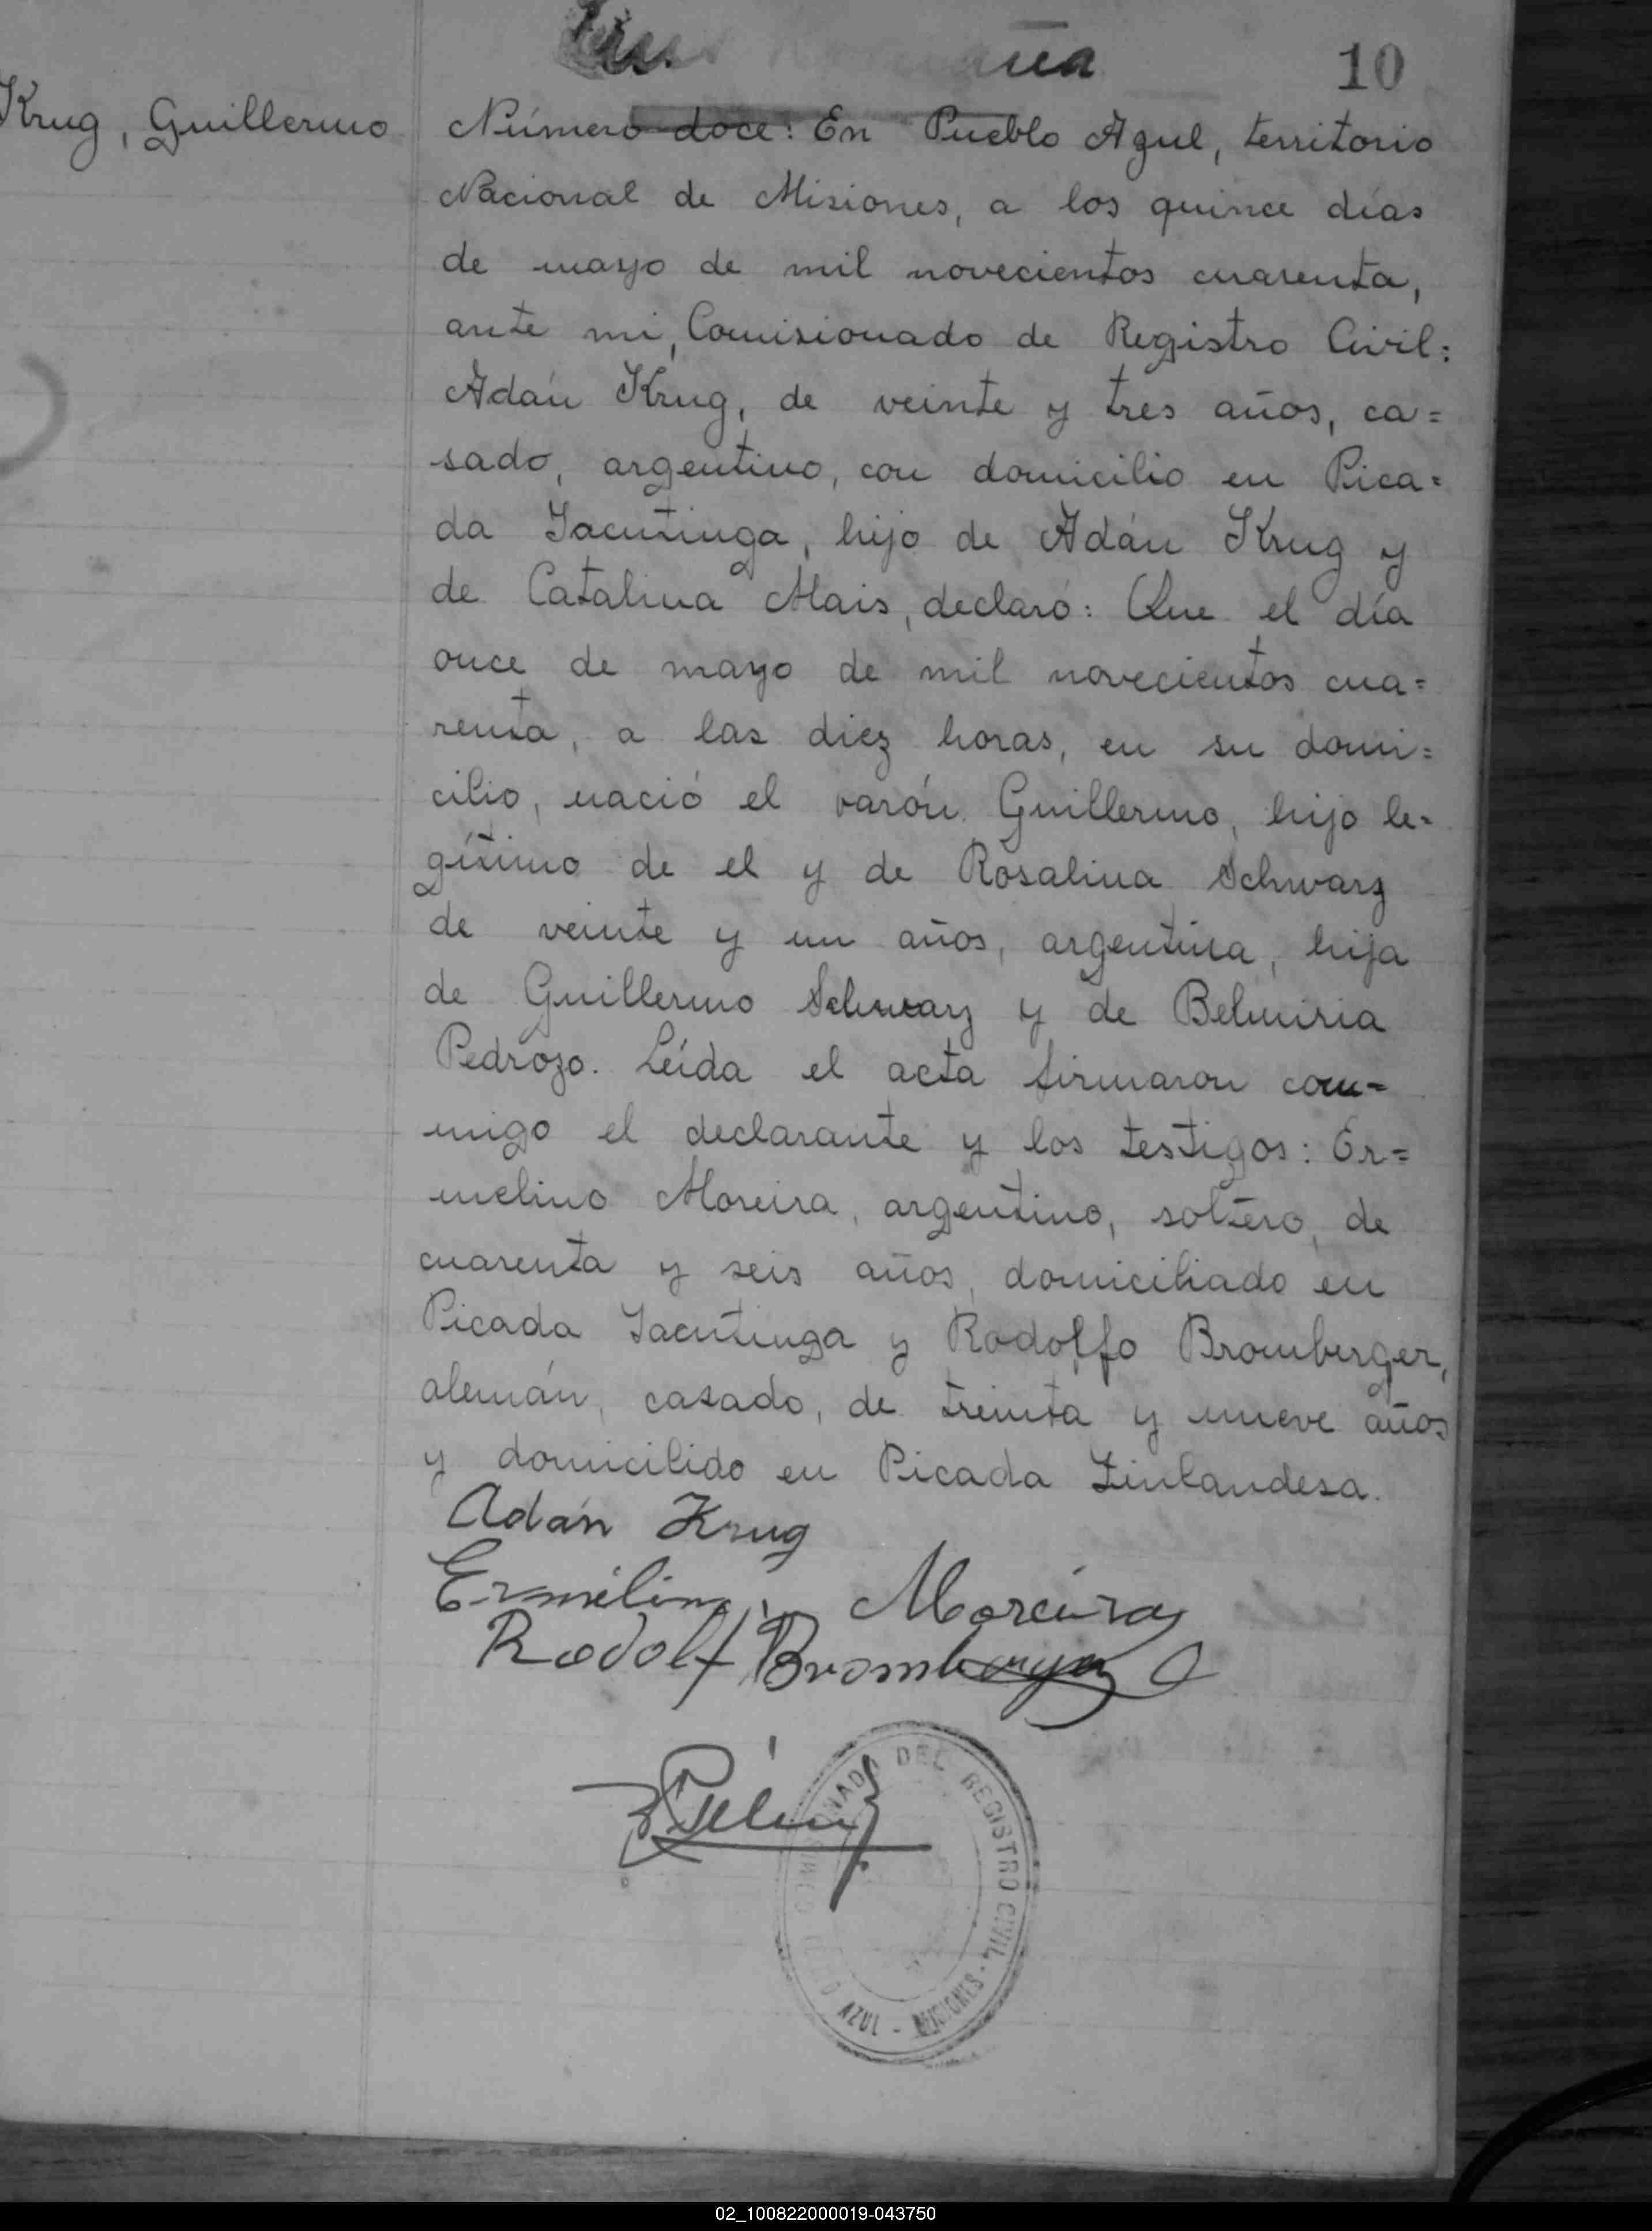 10
Krug, Guillermo
Número doce: En Pueblo Azul, territorio
Nacional de Misiones, a los quince días
de mayo de mil novecientos cuarenta,
ante mi, Comisionado de Registro Civil:
Adán Krug, de veinte y tres años, ca=
sado, argentino, con domicilio en Pica=
da Yacutinga, hijo de Adán Krug y
de Catalina Mais, declaró: Que el día
once de mayo de mil novecientos cua=
renta, a las diez horas, en su domi=
cilio, nació el varón Guillermo, hijo le=
gítimo de el y de Rosalina Schwarz
de veinte y un años, argentina, hija
de Guillermo Schwarz y de Belmiria
Pedrozo. Leída el acta firmaron con=
migo el declarante y los testigos: Er=
melino Moreira, argentino, soltero, de
cuarenta y seis años, domiciliado en
Picada Yacutinga y Rodolfo Bromberger,
alemán, casado, de treinta y nueve años
y domicilido en Picada Finlandesa.
Adán Krug
Ermélino Moreira
Rodolf Bromberger
DEL REGISTRO CIVIL
AZUL - MISIONES -
02_100822000019-043750